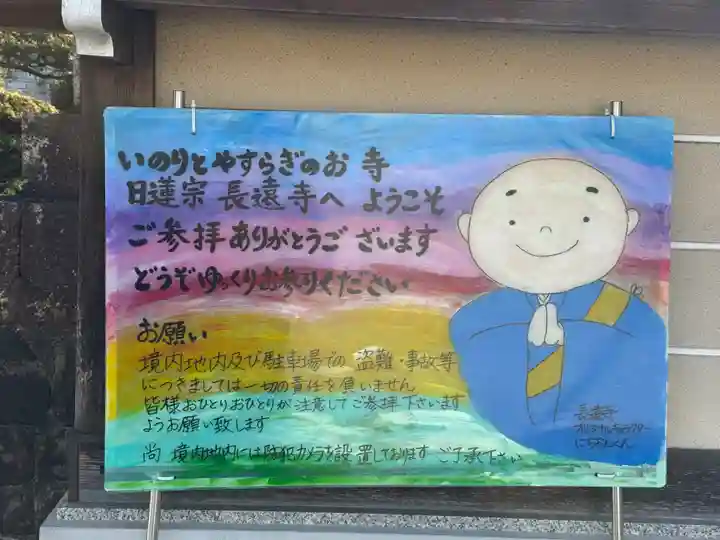 いのりとやすらぎのお寺
日蓮宗 長遠寺へ ようこそ
ご参拝ありがとうございます
どうぞゆっくりお参りください
お願い
境内地内及び駐車場での 盗難・事故等
につきましては一切の責任を負いません
皆様おひとりおひとりが注意してご参拝下さいます
ようお願い致します
尚 境内地内には防犯カメラを設置しております ご了承下さい
長遠寺
オリジナルキャラクター